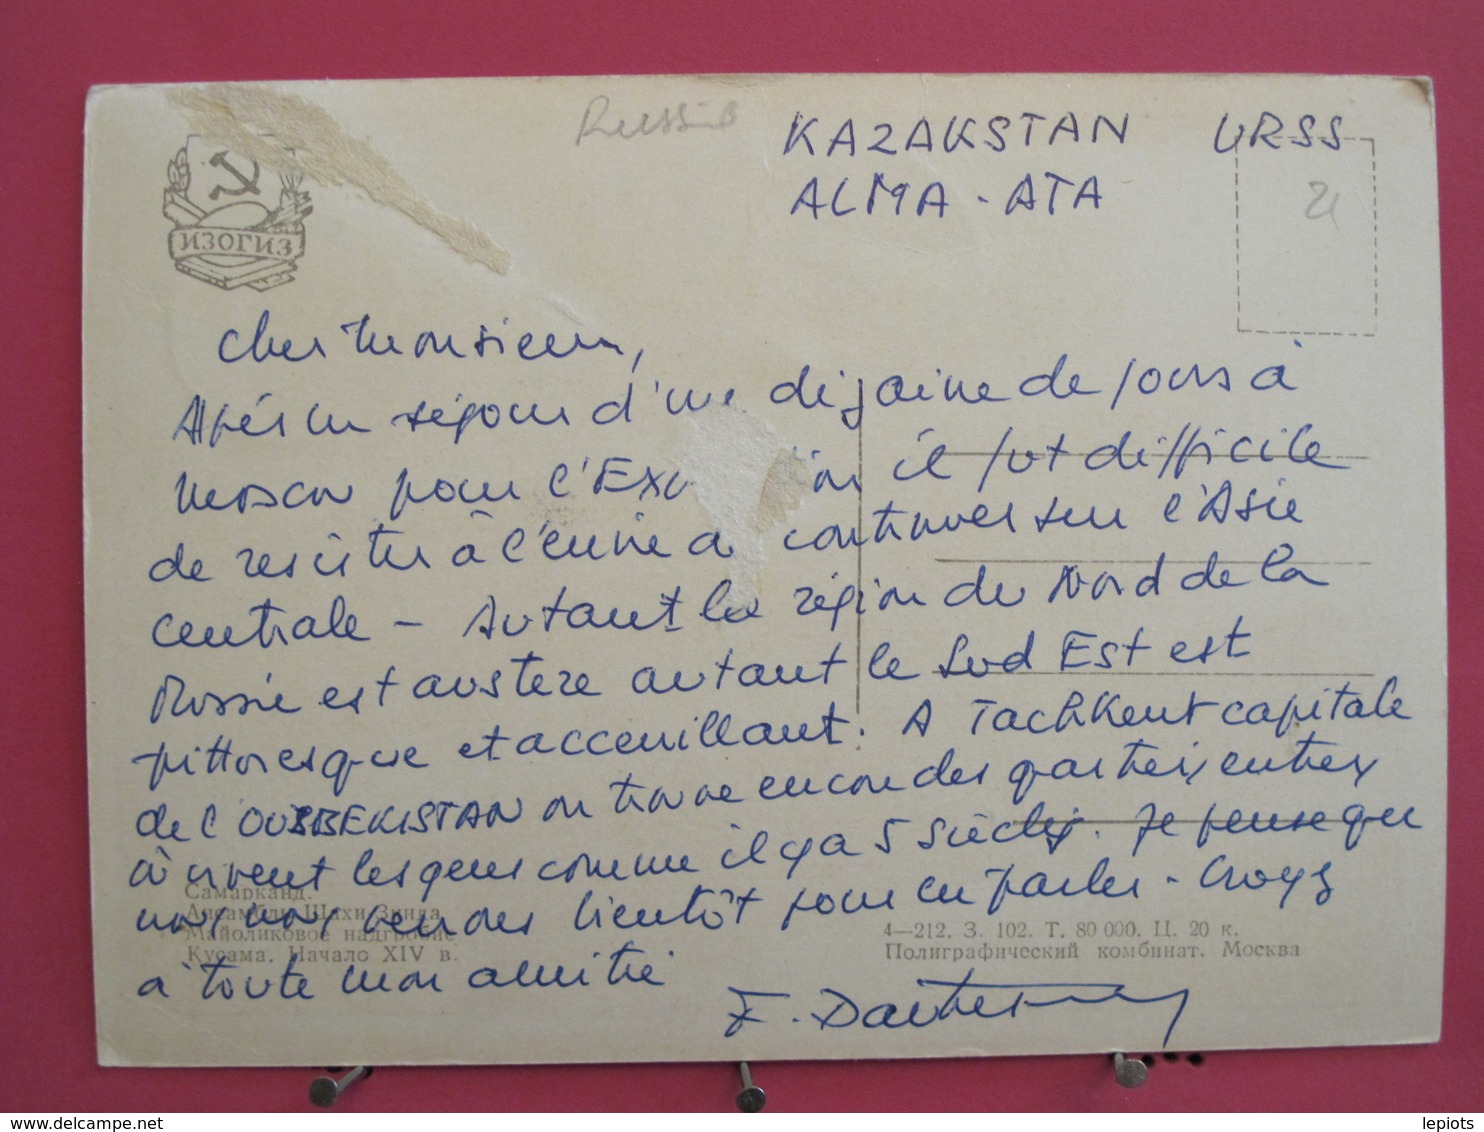 Russie
KAZAKSTAN URSS
ALMA-ATA
21
ИЗОГИЗ
Cher Monsieur,
Après un séjour d'une dizaine de jours à
Moscou pour l'Ex ion il fut difficile
de resister à l'envie de continuer sur l'Asie
centrale - Autant la région du Nord de la
Russie est austere autant le Sud Est est
pittoresque et acceuillant. A Tachkent capitale
de l'OUSBEKISTAN on trouve encore des quartiers entiers
où vivent les gens comme il y a 5 siècles. Je pense que
nous nous verrons bientôt pour en parler - Croyez
à toute mon amitié
F.
Самарканд.
Ансамбль Шахи-Зинда.
Майоликовое надгробие
Кусама. Начало XIV в.
4—212. З. 102. Т. 80 000. Ц. 20 к.
Полиграфический комбинат. Москва
lepiots